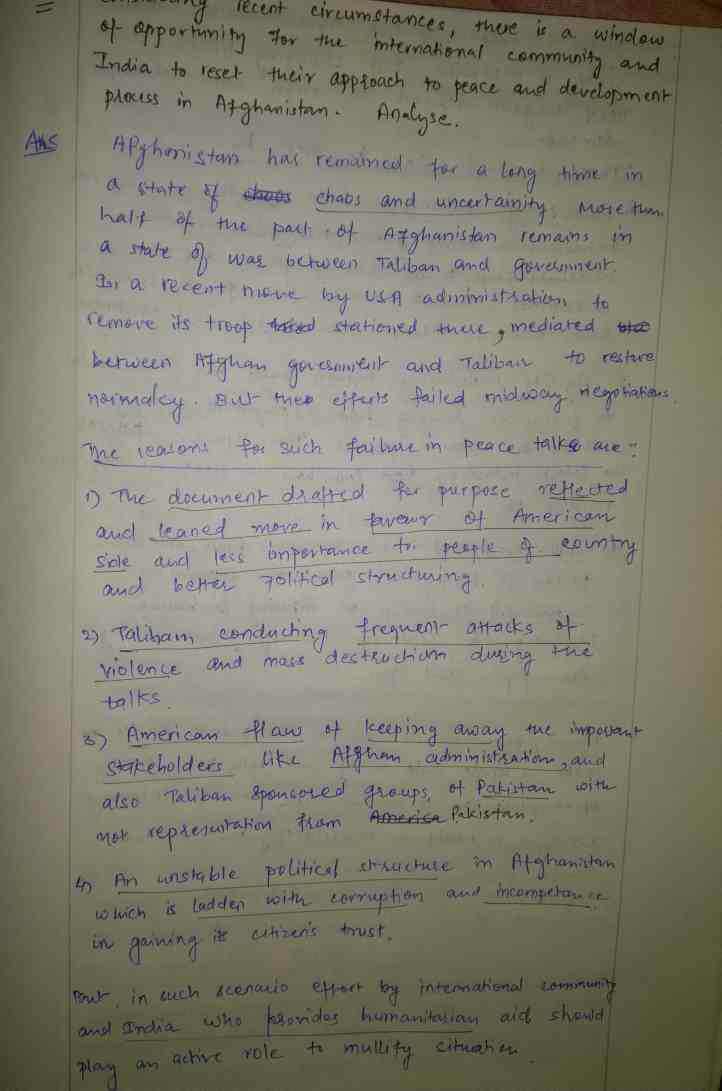 =
recent circumstances, there is a window
of opportunity for the international community and
India to reset their approach to peace and development
process in Afghanistan. Analyse.
Ans
Afghanistan has remained for a long time in
a state of chaos chaos and uncertainity. More than
half of the part of Afghanistan remains in
a state of war between Taliban and government.
In a recent move by USA administration, to
remove its troop stationed there, mediated
between Afghan government and Taliban to restore
normalcy. But these efforts failed midway negotiations.
The reasons for such failure in peace talks are :
1) The document drafted for purpose reflected
and leaned more in favour of American
side and less importance to people of country
and better political structuring.
2) Taliban, conducting frequent attacks of
violence and mass destruction during the
talks.
3) American flaw of keeping away the important
stakeholders like Afghan administration, and
also Taliban sponsored groups, of Pakistan with
not representation from America Pakistan.
4) An unstable political structure in Afghanistan
which is ladden with corruption and incompetance
in gaining its citizen's trust.
But, in such scenario effort by international community
and India who provides humanitarian aid should
play an active role to mullify situation.